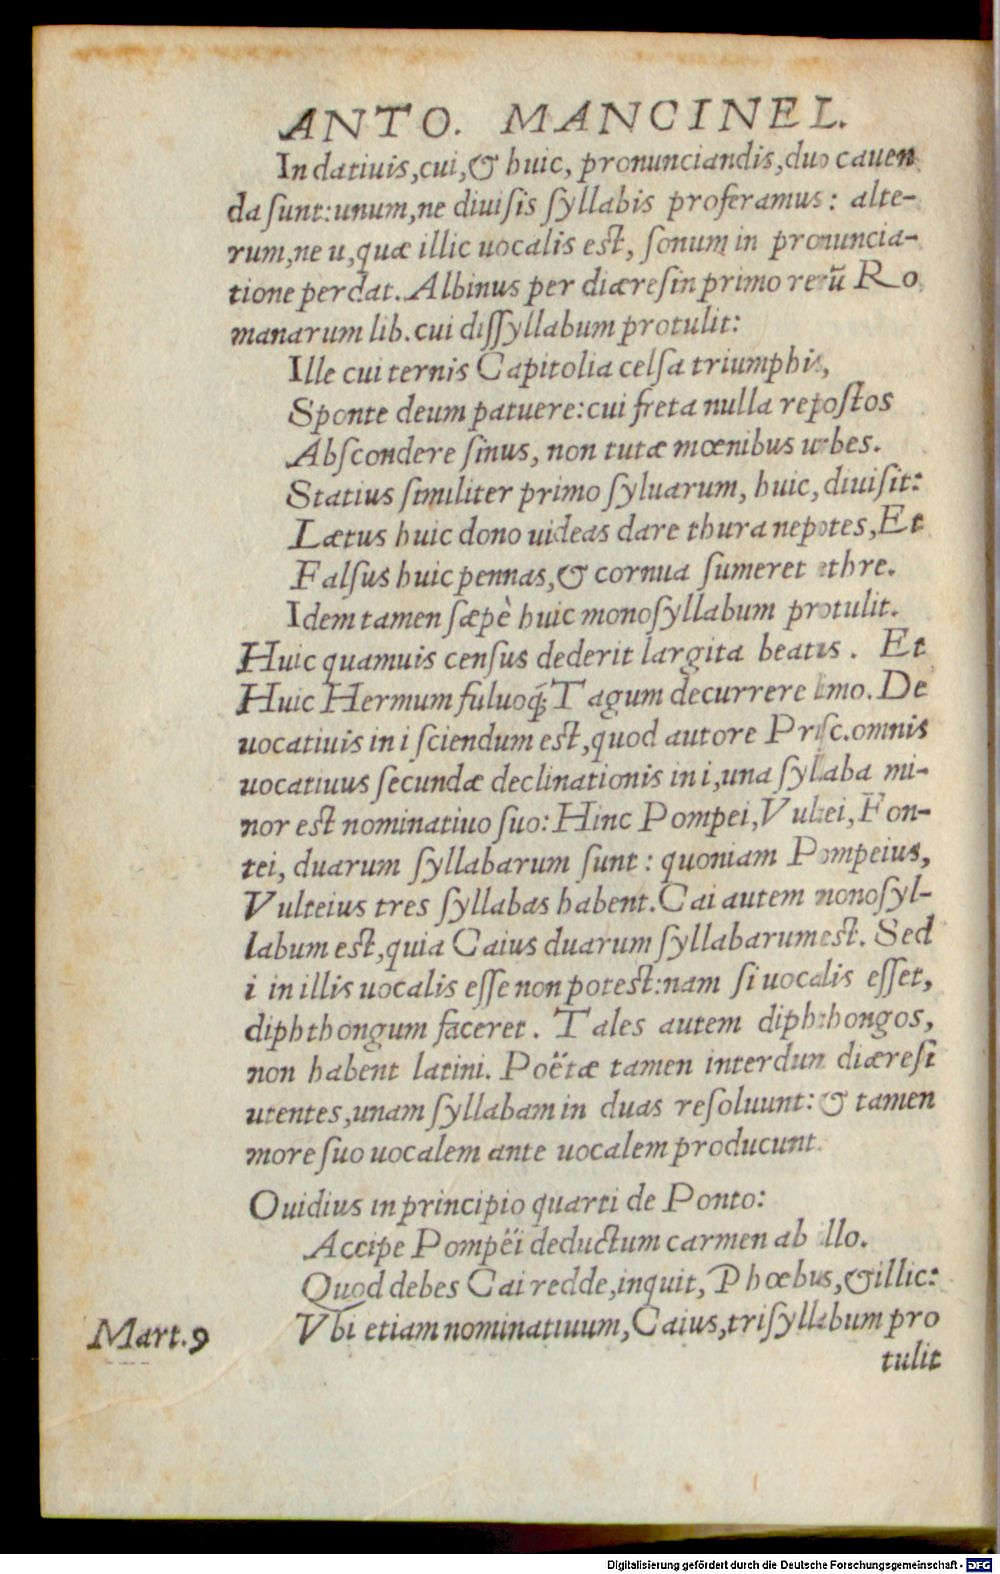 ANTO. MANCINEL.
In datiuis, cui, & huic, pronunciandis, duo cauen
da sunt: unum, ne diuisis syllabis proferamus: alte-
rum, ne u, quæ illic uocalis est, sonum in pronuncia-
tione perdat. Albinus per diæresin primo rerũ Ro
manarum lib. cui dissyllabum protulit:
Ille cui ternis Capitolia celsa triumphis,
Sponte deum patuere: cui freta nulla repostos
Abscondere sinus, non tutæ mœnibus urbes.
Statius similiter primo syluarum, huic, diuisit:
Lætus huic dono uideas dare thura nepotes, Et
Falsus huic pennas, & cornua sumeret ethre.
Idem tamen sæpè huic monosyllabum protulit.
Huic quamuis census dederit largita beatus. Et
Huic Hermum fuluoq́; Tagum decurrere limo. De
uocatiuis in i sciendum est, quod autore Prisc. omnis
uocatiuus secundæ declinationis in i, una syllaba mi-
nor est nominatiuo suo: Hinc Pompei, Vultei, Fon-
tei, duarum syllabarum sunt: quoniam Pompeius,
Vulteius tres syllabas habent. Cai autem monosyl-
labum est, quia Caius duarum syllabarum est. Sed
i in illis uocalis esse non potest: nam si uocalis esset,
diphthongum faceret. Tales autem diphthongos,
non habent latini. Poëtæ tamen interdum diæresi
utentes, unam syllabam in duas resoluunt: & tamen
more suo uocalem ante uocalem producunt.
Ouidius in principio quarti de Ponto:
Accipe Pompëi deductum carmen ab illo.
Quod debes Cai redde, inquit, Phœbus, & illic:
Mart. 9 Vbi etiam nominatiuum, Caius, trisyllabum pro
tulit
Digitalisierung gefördert durch die Deutsche Forschungsgemeinschaft - DFG